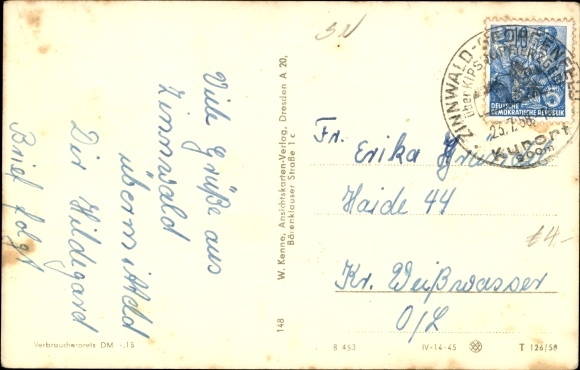 Viele Grüße aus
Zinnwald
übermitteld
Dir Hildegard
Brief folgt
Verbraucherpreis DM -.15
148
W. Kenne, Ansichtskarten-Verlag, Dresden A 20,
Bärenklauser Straße 1 c
ZINNWALD-GEORGENFELD
über KIPSDORF
23.7.58
Kurort
800m
DEUTSCHE
DEMOKRATISCHE REPUBLIK
5
Fr. Erika
Haide 44
Kr. Weißwasser
O/L
£4-
B 453
IV-14-45
T 126/58